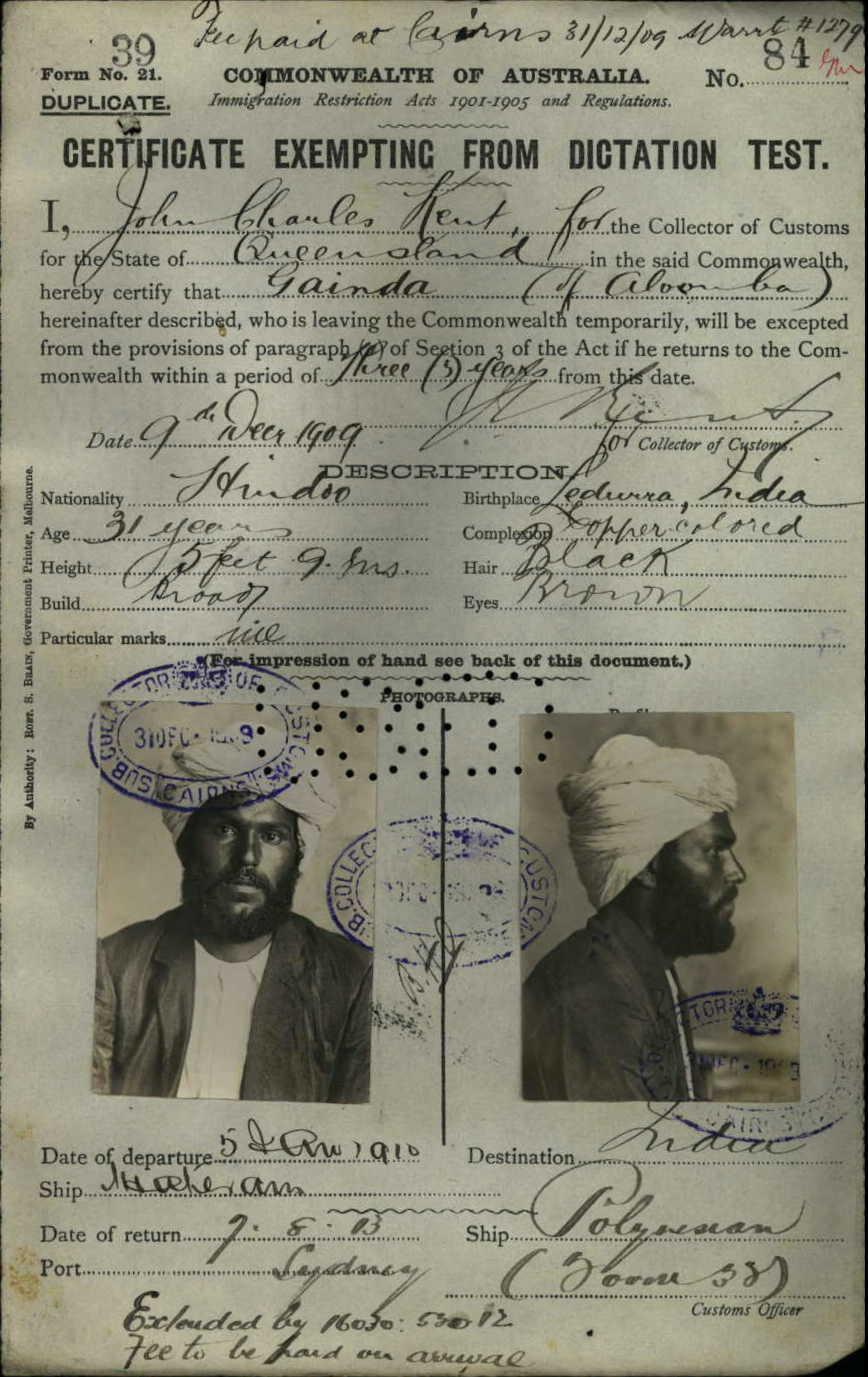 39 Fee paid at Cairns 31/12/09 Warrt #1279
Form No. 21. COMMONWEALTH OF AUSTRALIA. No. 84
DUPLICATE. Immigration Restriction Acts 1901-1905 and Regulations.
CERTIFICATE EXEMPTING FROM DICTATION TEST.
I, John Charles Kent, for the Collector of Customs
for the State of Queensland in the said Commonwealth,
hereby certify that Gainda (of Aloomba)
hereinafter described, who is leaving the Commonwealth temporarily, will be excepted
from the provisions of paragraph (a) of Section 3 of the Act if he returns to the Com-
monwealth within a period of three (3) years from this date.
Date 9th Decr 1909 J C Kent
for Collector of Customs.
DESCRIPTION
Nationality Hindoo Birthplace India
Age 31 years Complexion Copper colored
Height 5 feet 9 Ins. Hair Black
Build Broad Eyes Brown
Particular marks nil
(For impression of hand see back of this document.)
PHOTOGRAPHS.
SUB. COLLECTOR OF CUSTOMS
31 DEC 1909
CAIRNS
SUB. COLLECTOR CUSTOMS
COLLECTOR
CAIRNS
By Authority: ROBT. S. BRAIN, Government Printer, Melbourne.
Date of departure 5 Jan 1910 Destination India
Ship
Date of return 7. 8. 13 Ship Polynesian
Port Sydney (Form 33)
Customs Officer
Extended by
Fee to be paid on arrival